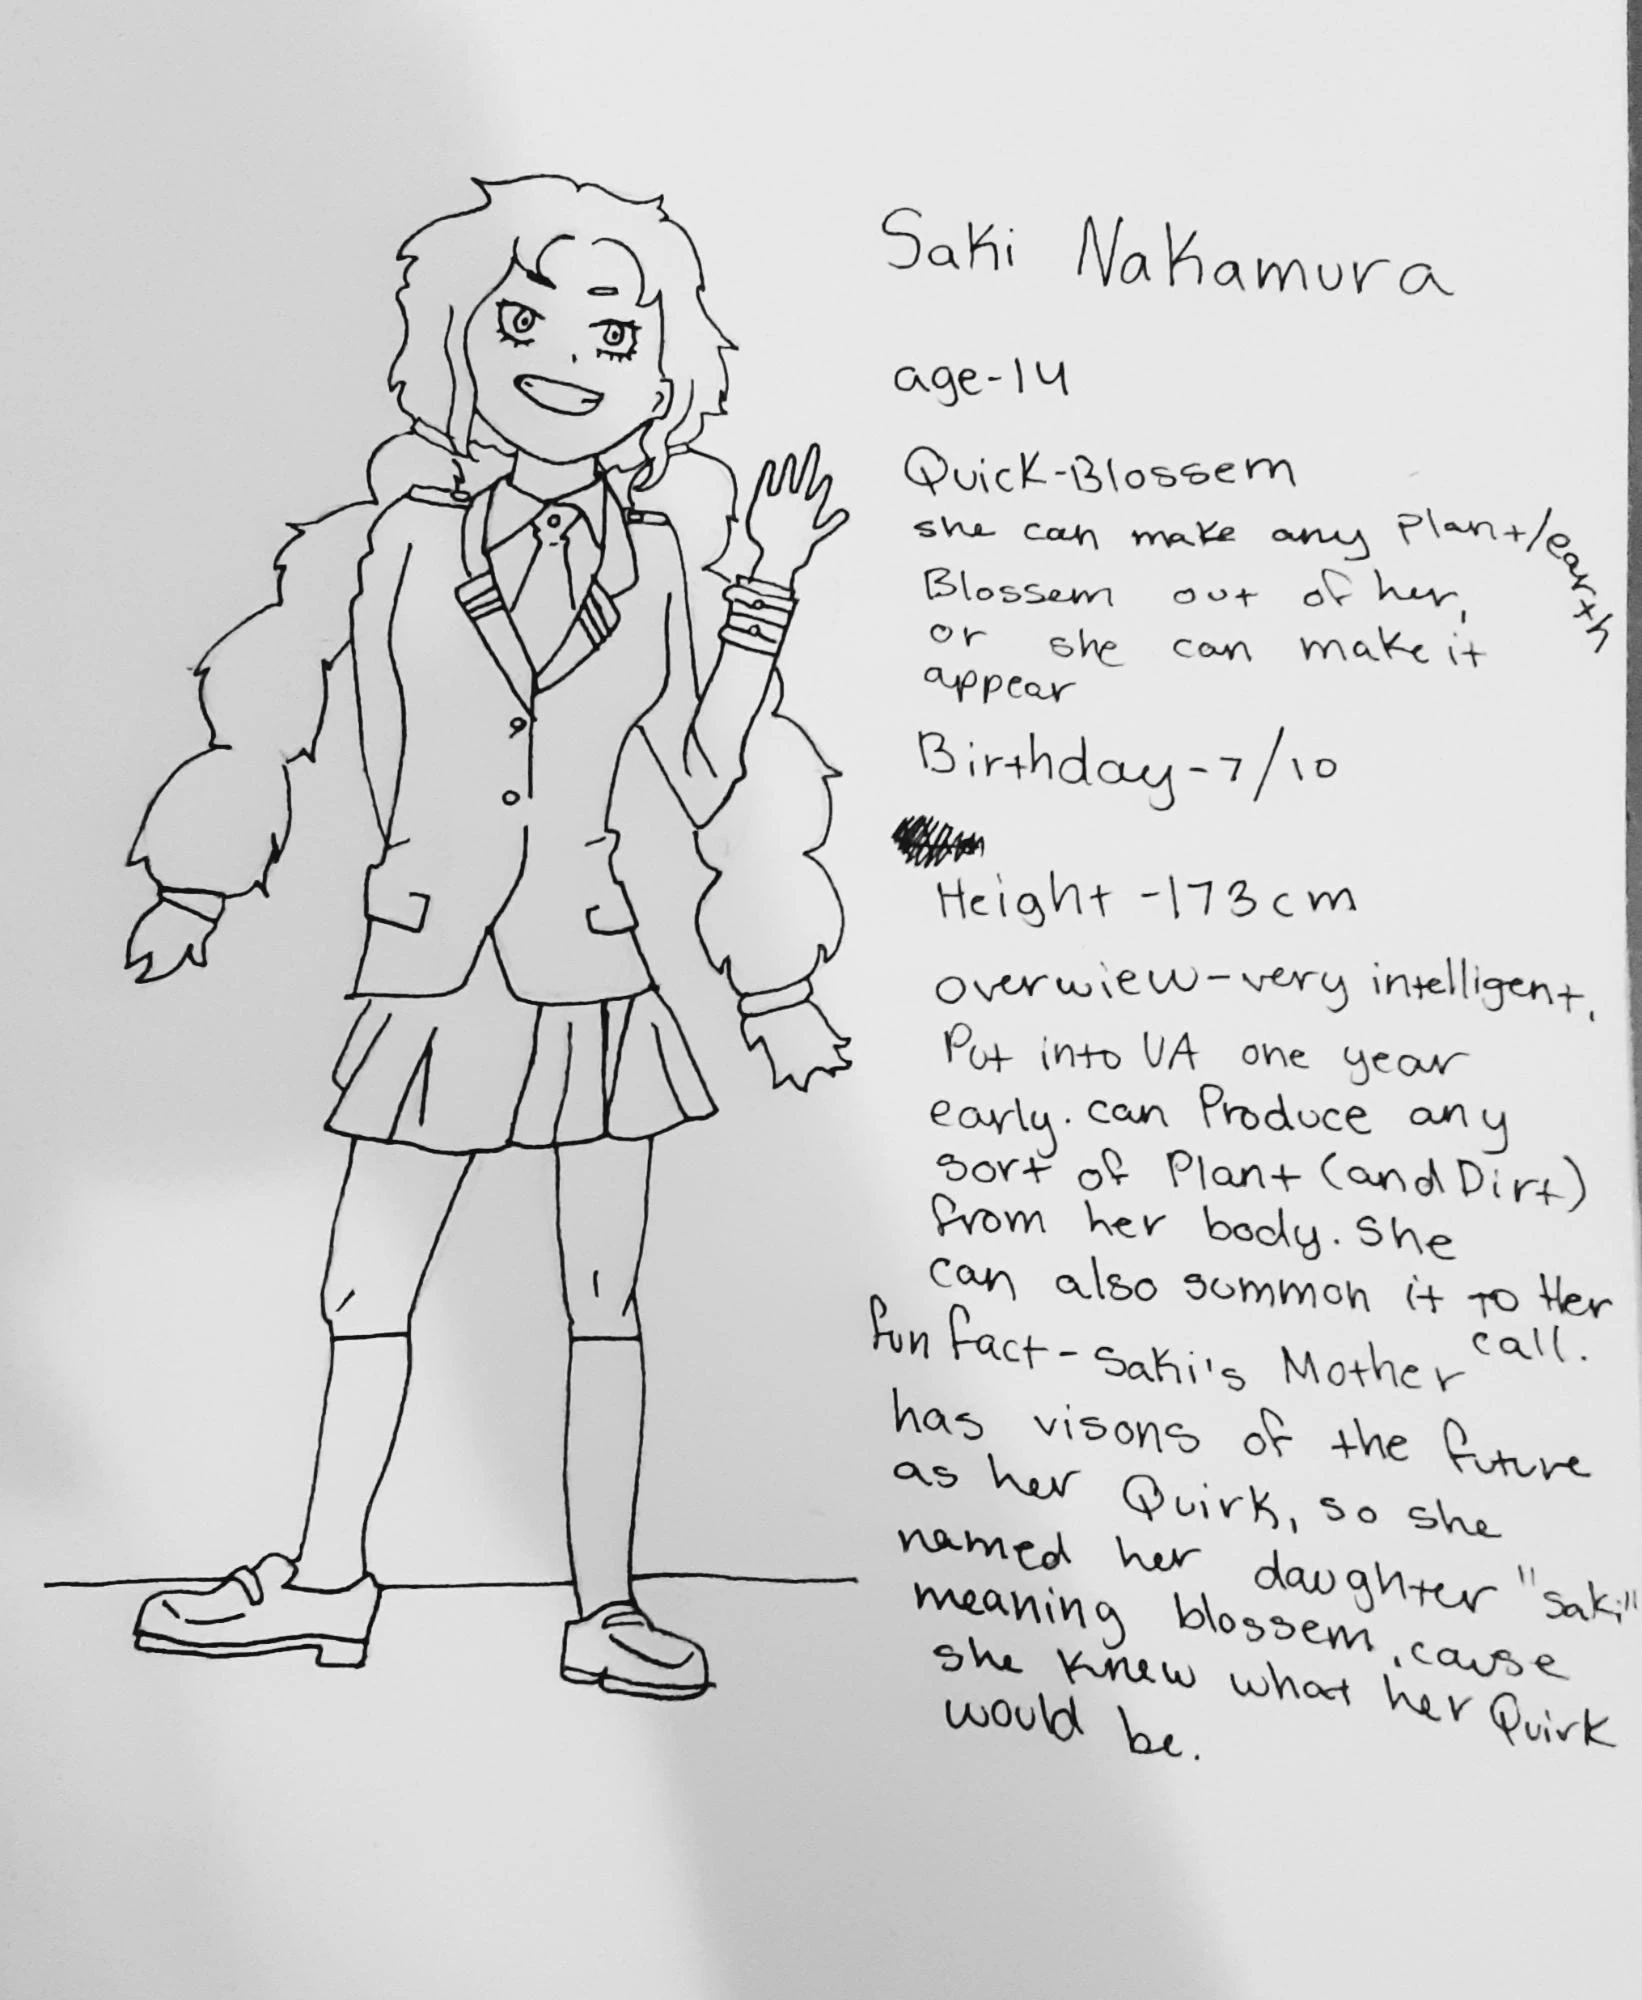 Saki Nakamura
age-14
Quick-Blossem
she can make any plant/earth
Blossem out of her,
or she can make it
appear
Birthday-7/10
Height -173cm
overwiew-very intelligent.
Put into UA one year
early. can Produce any
sort of Plant (and Dirt)
from her body. She
can also summon it to Her
call.
fun fact- Saki's Mother
has visons of the future
as her Quirk, so she
named her daughter "Saki"
meaning blossem, cause
she knew what her Quirk
would be.